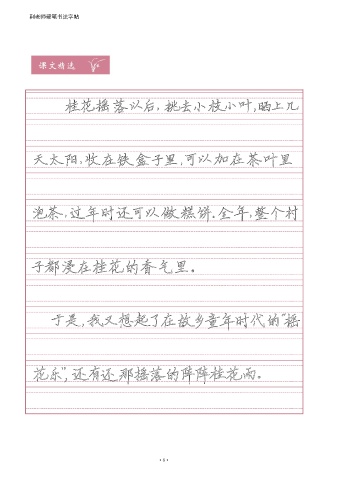 田英章硬笔书法字帖
课文精选
桂花摇落以后，挑去小枝小叶，晒上几
天太阳，收在铁盒子里，可以加在茶叶里
泡茶，过年时还可以做糕饼。全年，整个村
子都浸在桂花的香气里。
于是，我又想起了在故乡童年时代的“摇
花乐”，还有还那摇落的阵阵桂花雨。